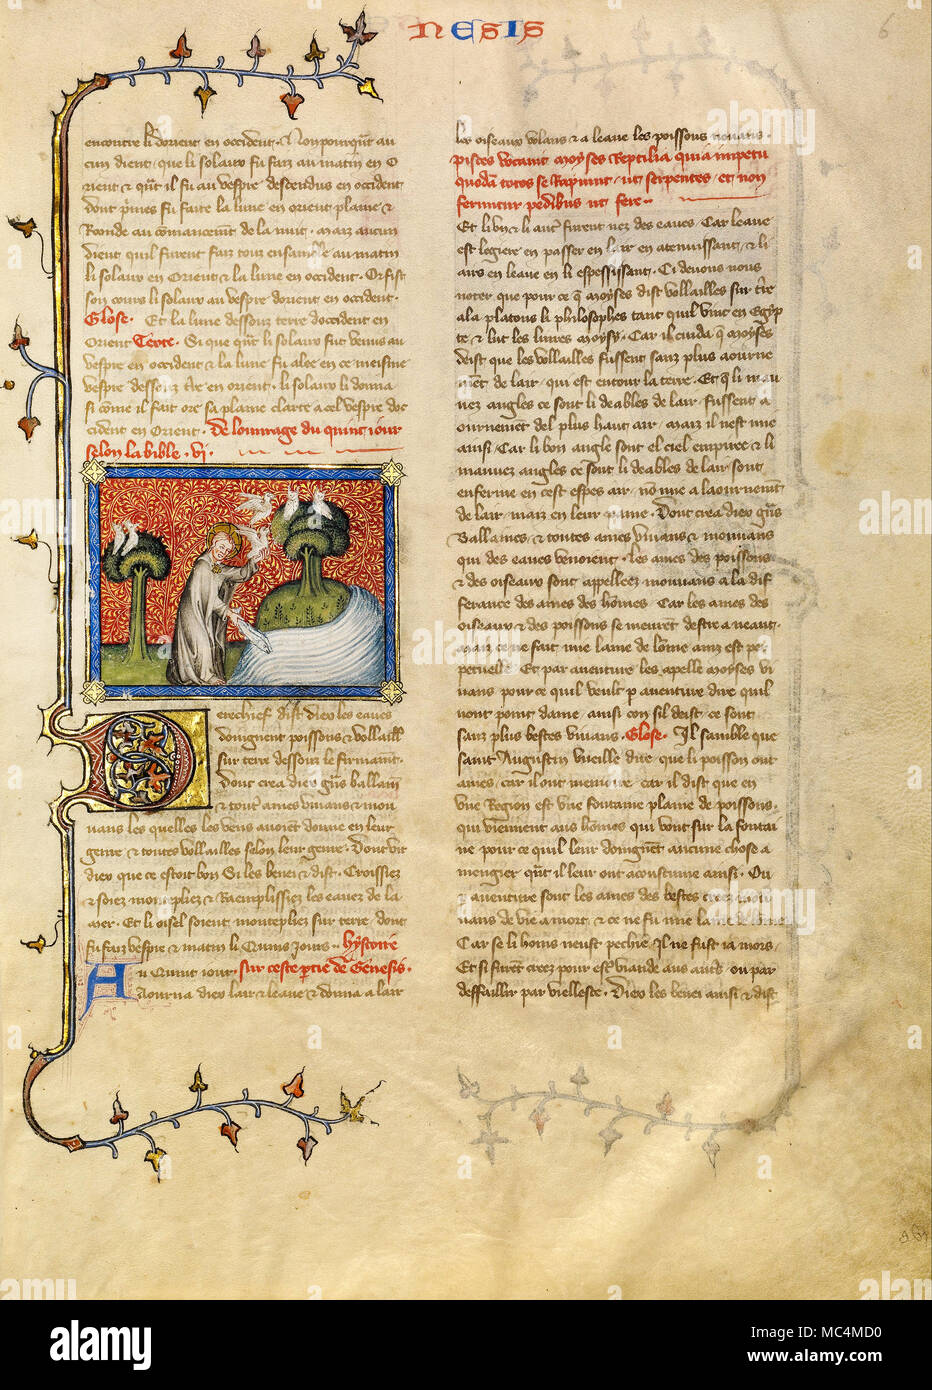 NESIS
6
encontre li dorient en occident · Nonpourqūt au
cun dient · que li solaux fu faiz au matin en o
rient ⁊ qūt il fu au vespre descendus en occident
dont p̄mes fu faite la lune en orient plaine ⁊
Roonde au cōmancemt̄ de la nuit · maiz aucun
dient quil furent faiz tout ensamble au matin
li solaux en Orient ⁊ la lune en occident · Or fist
son cours li solaux au vespre dorient en occident ·
Glose · Et la lune dessouz terre doccident en
Orient Texte · Si que qūt li solaux fut venus au
vespre en occident ⁊ la lune fu aloe en ce meisme
vespre dessouz t̄re en orient · li solaux li donna
si cōme il fait ore sa plaine clarte a cel vespre doc
cident en Orient · De louurage du quint iour
selon la bible · vi ·
Derechief dist diex les eaues
doingnent poissons ⁊ vollaill
sur terre dessouz le firmamt̄ ·
Dont crea diex gn̄s ballain̄
⁊ tout̄ ames vivans ⁊ mou
uans les quelles les yeus auoiēt donne en leur
genre ⁊ toutes vollailles selon leur genre · Dont vit
diex que ce estoit bon Si les benei ⁊ dist · Croissiez
⁊ soiez montepliez ⁊ Raemplissiez les eauez de la
mer · Et li oisel soient montepliez sur terre dont
fu faiz vespre ⁊ matin li Quins iours · hystoire
Au Quint iour · sur ceste p̄tie de Genesis ·
Aourna diex lair ⁊ leaue ⁊ donna a lair
les oiseaux volans ⁊ a leaue les poissons nouans ·
pisces vocant moyses Reptilia quia impetu
quodā totos se Rapiunt · ut serpentes · et non
feruntur pedibus ut fere ·
Et li un ⁊ li aut̄ furent nez des eaues · Car leaue
est legiere en passer en lair en atenuissant · ⁊ li
airs en leaue en li espessissant · Ci deuons nous
noter que pour ce q̄ moyses dist vollailles sur t̄re
ala platons li philosophes tant quil vint en Egyp
te ⁊ lut les liures moysy · Car il cuida q̄ moyses
deist que les vollailles fussent sanz plus aourne
mēt de lair · qui est entour la terre · Et q̄ li mau
uez angles ce sont li deables de lair · fussent a
ournemēt del plus hault air · maiz il nest mie
ainsi · Car li bon angle sont el ciel empiree ⁊ li
mauuez angles ce sont li deables de lair sont
enferme en cest espes air · nō mie a laournemt̄
de lair · maiz en leur paine · Dont crea diex gn̄s
Ballaines · ⁊ toutes ames viuans ⁊ mouuans
qui des eaues venoient · les ames des poissons
⁊ des oiseaux sont appellees mouuans a la dif
ferance des ames des hōmes · Car les ames des
oiseaux · ⁊ des poissons se meurēt destre a neant ·
maiz ce ne fait mie lame de lōme ainz est per
petuelle · Et par auenture les apelle moyses vi
uans pour ce quil veult p auenture dire quil
nont point dame · ainsi con sil deist · ce sont
sanz plus bestes viuans · Glose · Il samble que
saint Augustin vueille dire que li poisson ont
ames · car il ont memoire · car il dist que en
vne Region est vne fontaine plaine de poissons ·
qui viennent aus hōmes qui vont sur la fontai
ne pour ce quil leur doingnēt aucune chose a
mengier · qūt il leur ont acoustume ainsi · Ou
p auenture sont les ames des bestes creez mou
uans de vie a mort · ⁊ ce ne fu mie lame de lōme
Car se li hōms neust pechie · Il ne fust ia mors ·
Et si furēt creez pour est̄ viande aus aut̄s · ou par
deffaillir par viellesce · Diex les benei ainsi ⁊ dist
alamy
Image ID: MC4MD0
www.alamy.com